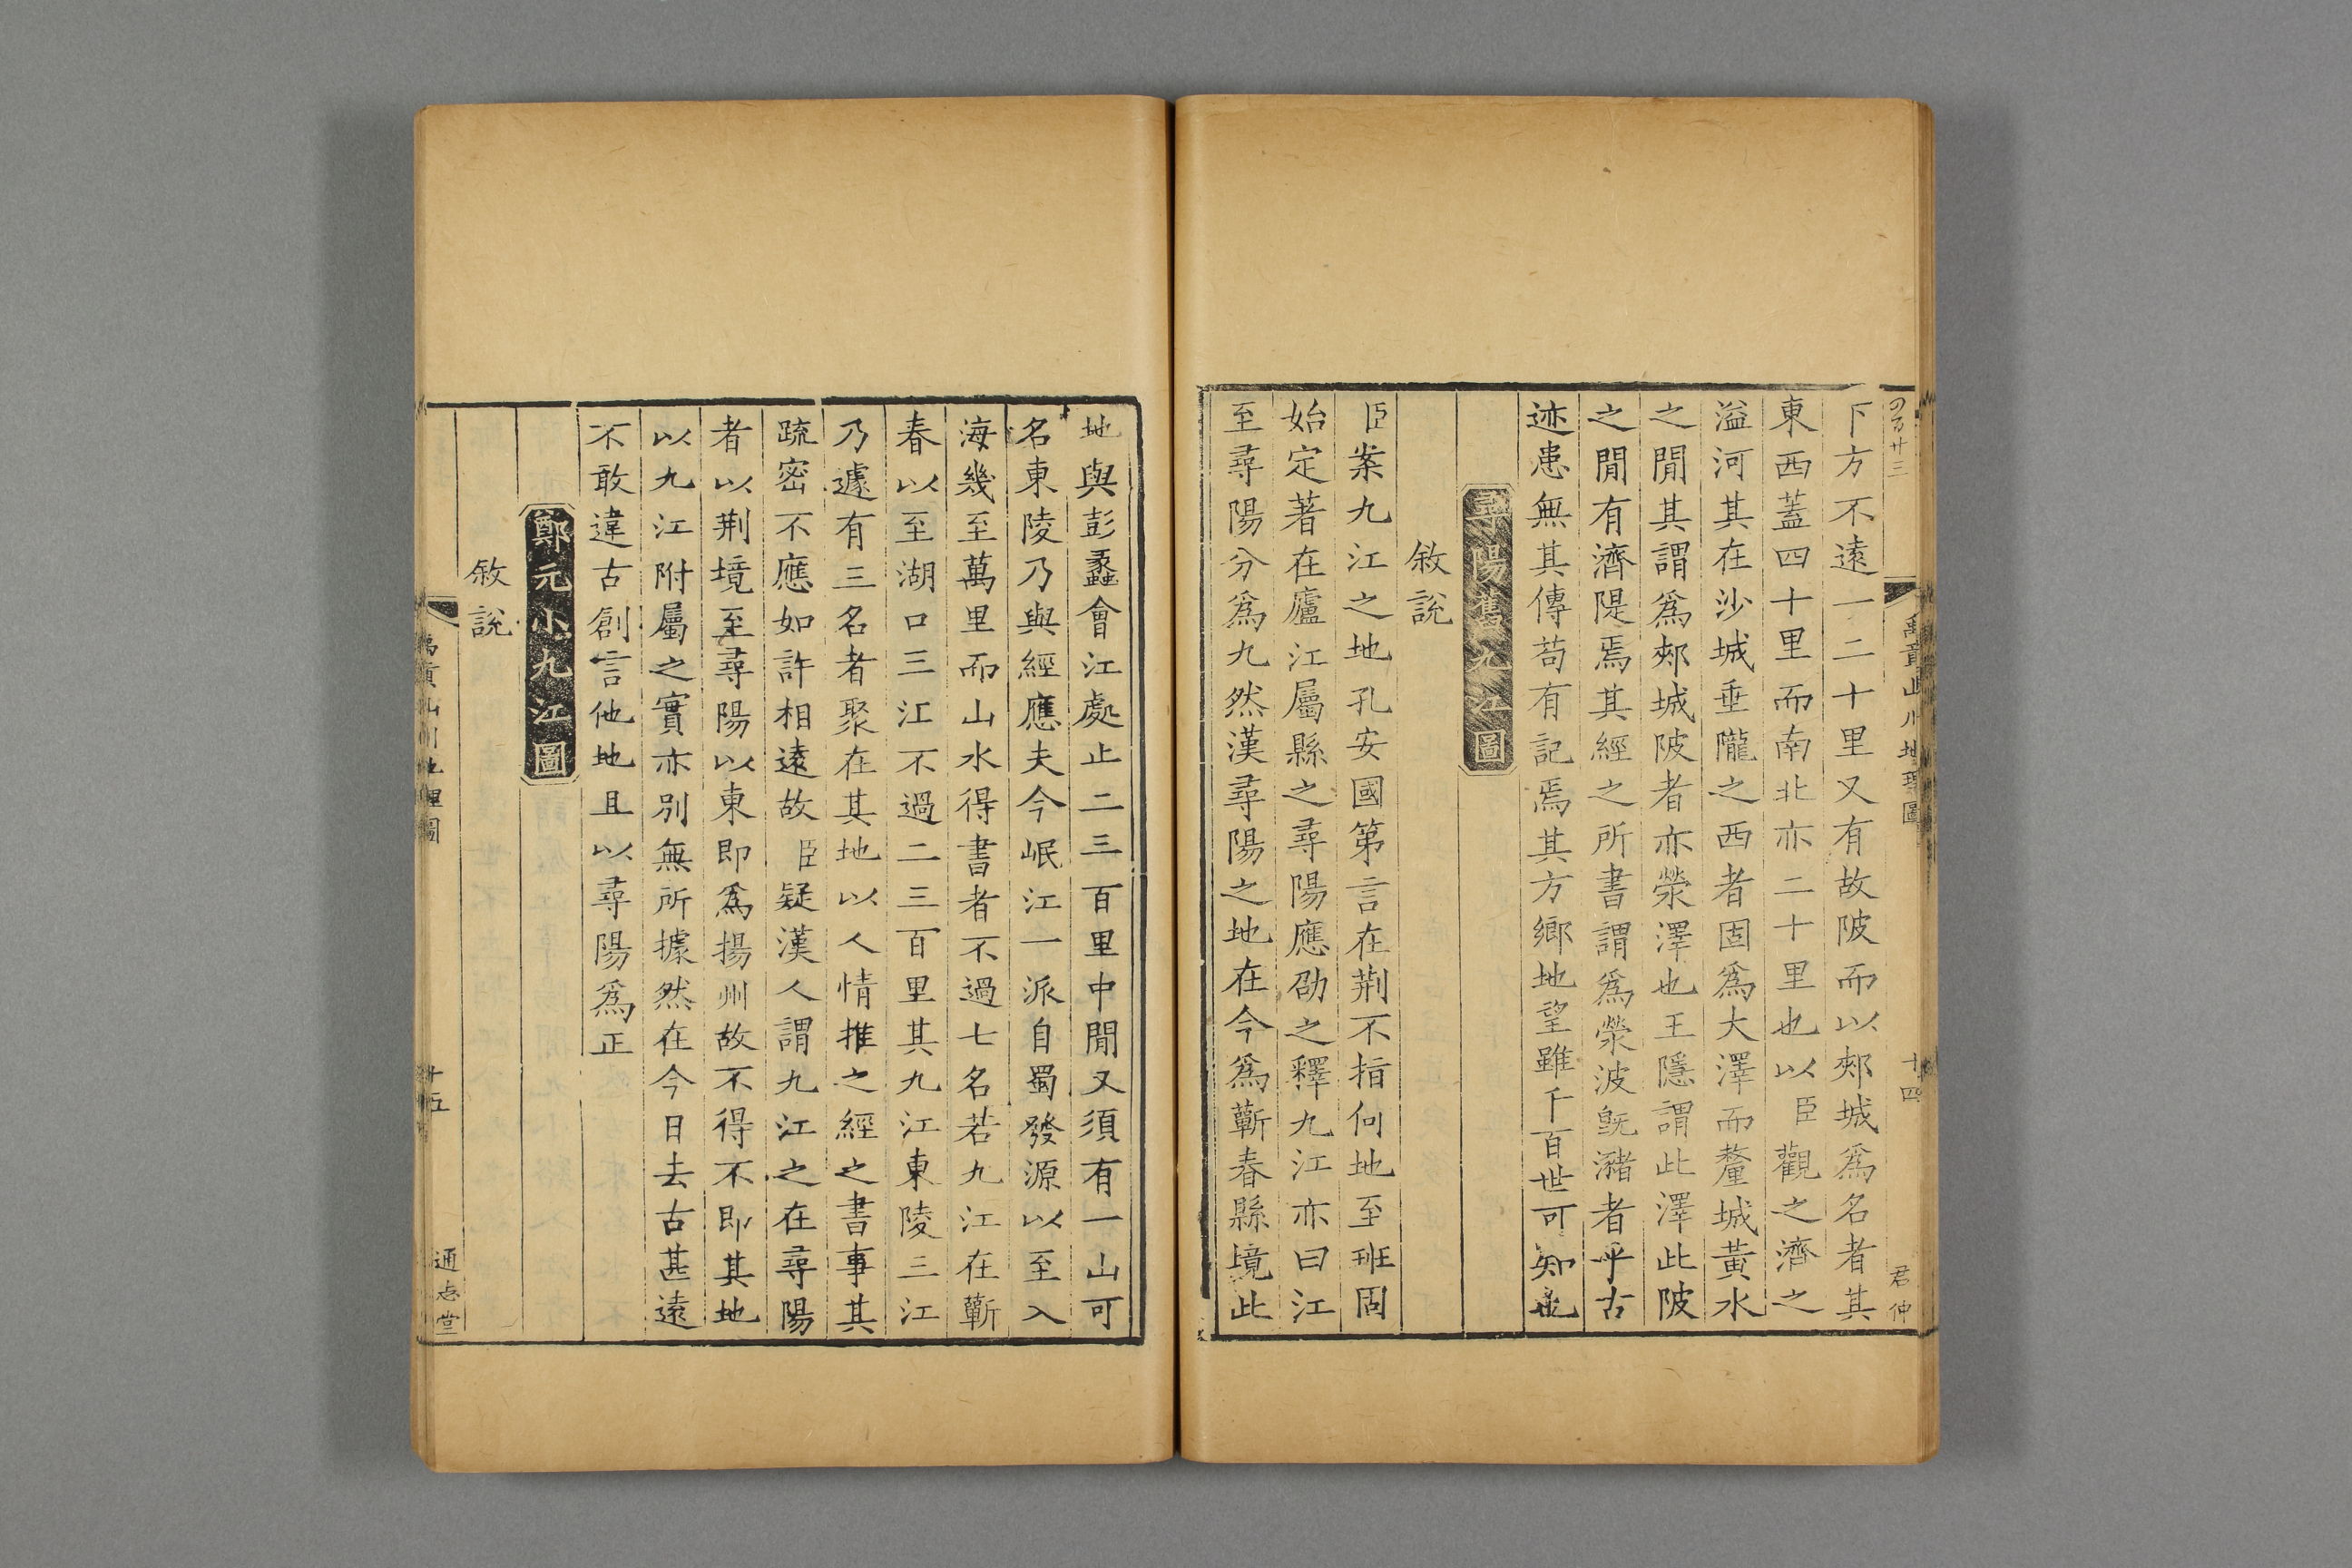 下方不遠一二十里又有故陂而以郟城爲名者其
東西蓋四十里而南北亦二十里也以臣觀之濟之
溢河其在沙城垂隴之西者固爲大澤而釐城黃水
之閒其謂爲郟城陂者亦滎澤也王隱謂此澤此陂
之閒有濟隄焉其經之所書謂爲滎波旣瀦者乎古
迹患無其傳苟有記焉其方鄉地望雖千百世可知也
尋陽舊九江圖
敘說
臣案九江之地孔安國第言在荆不指何地至班固
始定著在廬江屬縣之尋陽應劭之釋九江亦曰江
至尋陽分爲九然漢尋陽之地在今爲蘄春縣境此
禹貢山川地理圖
十四
君仲
地與彭蠡會江處止二三百里中閒又須有一山可
名東陵乃與經應夫今岷江一派自蜀發源以至入
海幾至萬里而山水得書者不過七名若九江在蘄
春以至湖口三江不過二三百里其九江東陵三江
乃遽有三名者聚在其地以人情推之經之書事其
疏密不應如許相遠故臣疑漢人謂九江之在尋陽
者以荆境至尋陽以東即爲揚州故不得不即其地
以九江附屬之實亦別無所據然在今日去古甚遠
不敢違古創言他地且以尋陽爲正
鄭元小九江圖
敘說
禹貢山川地理圖
十五
通志堂